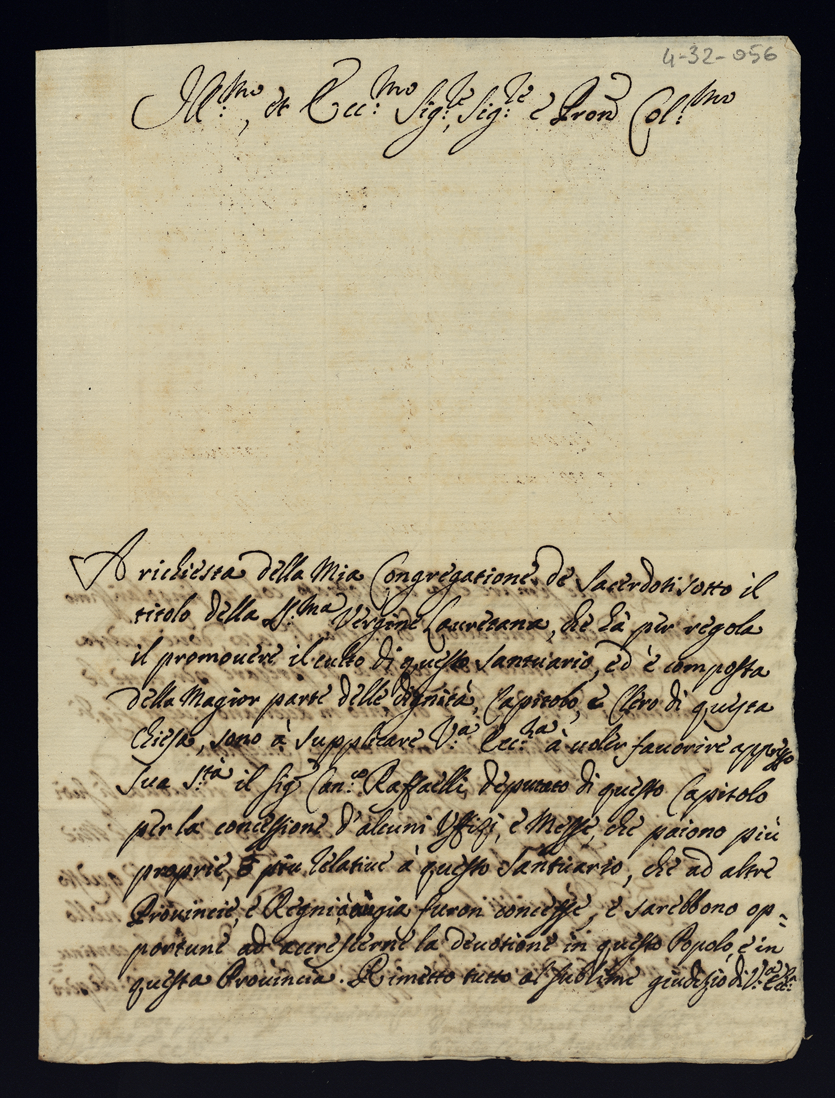 4-32-056
Ill:mo, et Ecc:mo Sig:re, Sig:re e Pron Col:mo
A richiesta della Mia Congregatione de Sacerdoti sotto il
titolo della S:ma Vergine Lauretana, che hà per regola
il promouere il culto di questo Santuario, ed è composta
della Magior parte delle Dignità, Capitolo, e Clero di questa
Chiesa, sono à supplicare V:a Ecc:za à uoler fauorire appresso
Sua S:tà il Sig Can:co Raffaelli, deputato di questo Capitolo
per la concessione d'alcuni Uffizj, e Messe, che paiono più
proprie, e più relatiue à questo Santuario, che ad altre
Prouincie, e Regni à cui già furon concesse, e sarebbono op=
portune ad accrescerne la deuotione in questo Popolo, e in
questa Prouincia. Rimetto tutto al sublime giudizio di V:a Ecc: